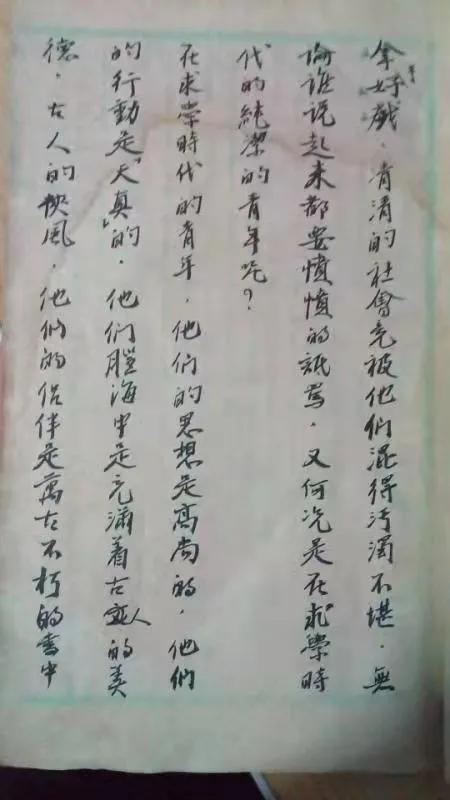 拿好戲，青清的社會竟被他們混得污濁不堪，無
論誰说起来都要憤憤的詆罵，又何况是在求學時
代的純潔的青年呢？
在求學時代的青年，他們的思想是高尚的，他們
的行動是「天真」的，他們腦海中是充滿着古人的美
德，古人的遺風，他們的侣伴是萬古不朽的書中